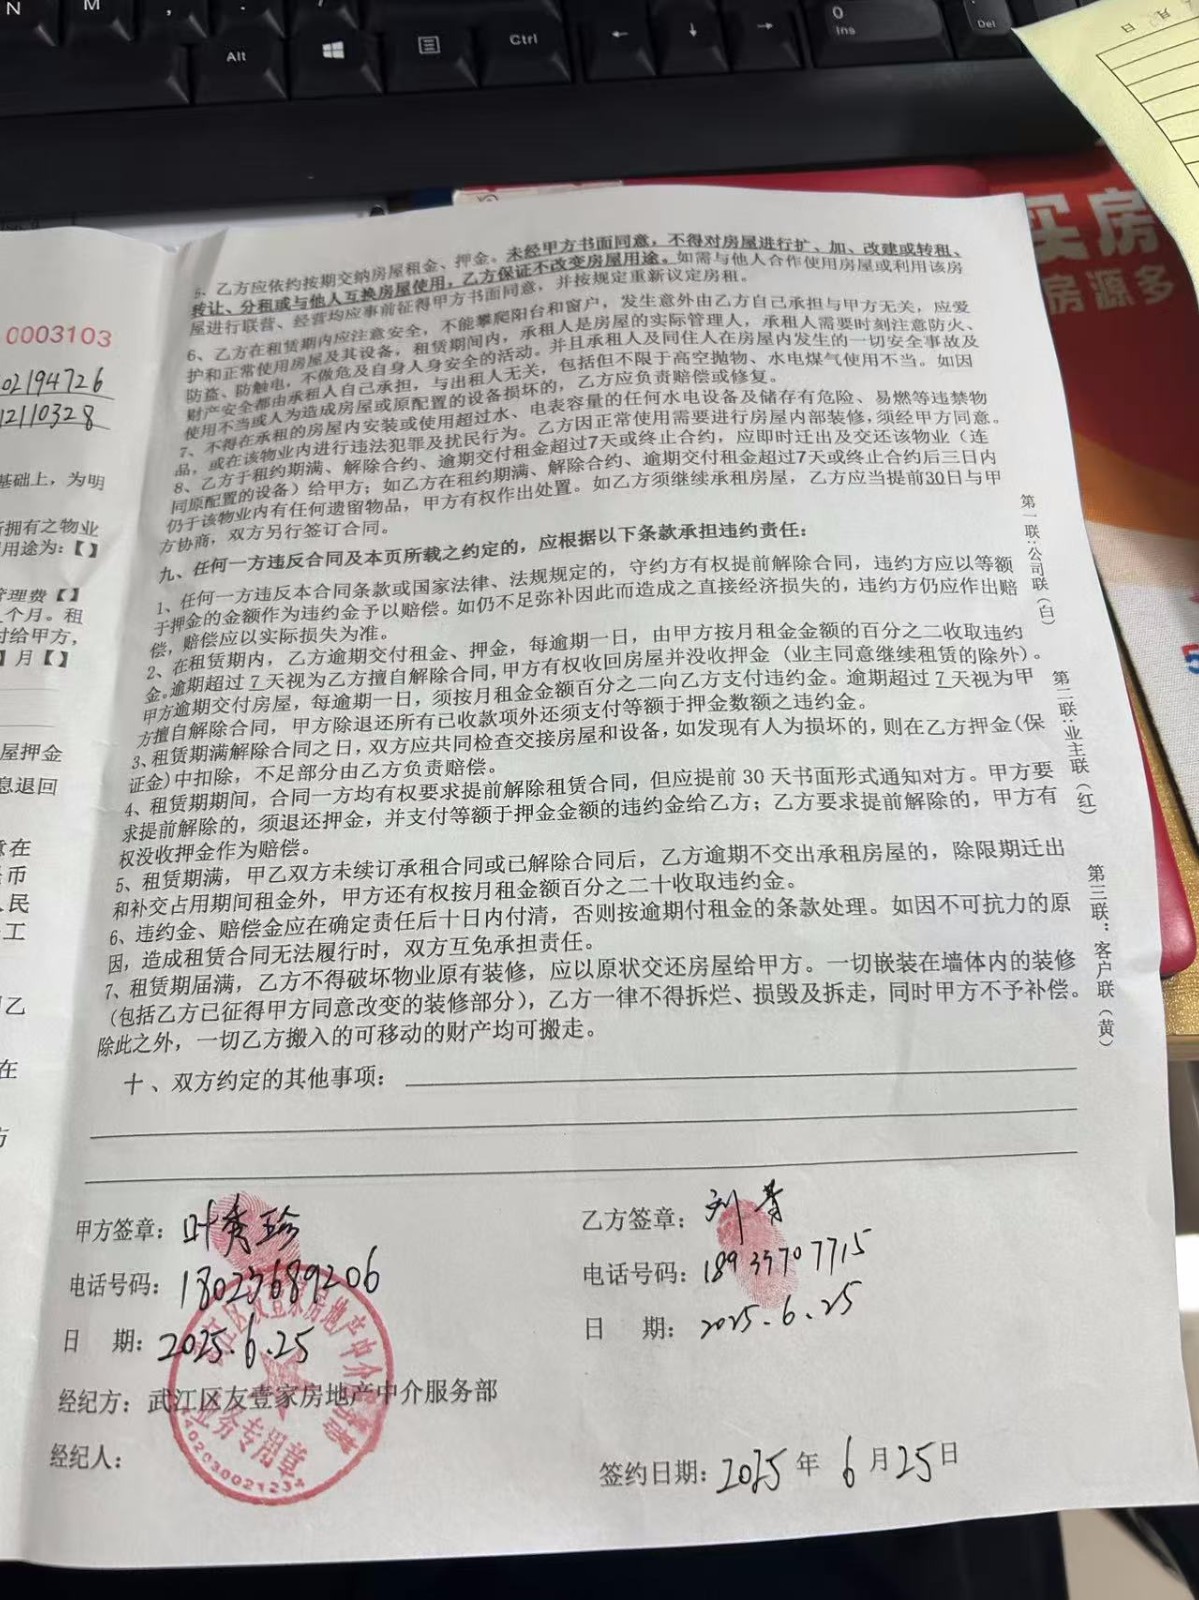 N
M
Alt
Ctrl
0
Ins
Del
月
日
买房
房源多
0003103
02194726
12110328
基础上，为明
所拥有之物业
用途为:【】
管理费【】
个月。租
付给甲方，
】月【】
屋押金
息退回
在
币
民
工
乙
在
方
5、乙方应依约按期交纳房屋租金、押金。未经甲方书面同意，不得对房屋进行扩、加、改建或转租、
转让、分租或与他人互换房屋使用，乙方保证不改变房屋用途。如需与他人合作使用房屋或利用该房
屋进行联营、经营均应事前征得甲方书面同意，并按规定重新议定房租。
6、乙方在租赁期内应注意安全，不能攀爬阳台和窗户，发生意外由乙方自己承担与甲方无关，应爱
护和正常使用房屋及其设备，租赁期间内，承租人是房屋的实际管理人，承租人需要时刻注意防火、
防盗、防触电，不做危及自身人身安全的活动。并且承租人及同住人在房屋内发生的一切安全事故及
财产安全都由承租人自己承担，与出租人无关，包括但不限于高空抛物、水电煤气使用不当。如因
使用不当或人为造成房屋或原配置的设备损坏的，乙方应负责赔偿或修复。
7、不得在承租的房屋内安装或使用超过水、电表容量的任何水电设备及储存有危险、易燃等违禁物
品，或在该物业内进行违法犯罪及扰民行为。乙方因正常使用需要进行房屋内部装修，须经甲方同意。
8、乙方于租约期满、解除合约、逾期交付租金超过7天或终止合约，应即时迁出及交还该物业（连
同原配置的设备）给甲方；如乙方在租约期满、解除合约、逾期交付租金超过7天或终止合约后三日内
仍于该物业内有任何遗留物品，甲方有权作出处置。如乙方须继续承租房屋，乙方应当提前30日与甲
方协商，双方另行签订合同。
九、任何一方违反合同及本页所载之约定的，应根据以下条款承担违约责任：
1、任何一方违反本合同条款或国家法律、法规规定的，守约方有权提前解除合同，违约方应以等额
于押金的金额作为违约金予以赔偿。如仍不足弥补因此而造成之直接经济损失的，违约方仍应作出赔
偿，赔偿应以实际损失为准。
2、在租赁期内，乙方逾期交付租金、押金，每逾期一日，由甲方按月租金金额的百分之二收取违约
金。逾期超过 7 天视为乙方擅自解除合同，甲方有权收回房屋并没收押金（业主同意继续租赁的除外）。
甲方逾期交付房屋，每逾期一日，须按月租金金额百分之二向乙方支付违约金。逾期超过 7 天视为甲
方擅自解除合同，甲方除退还所有已收款项外还须支付等额于押金数额之违约金。
3、租赁期满解除合同之日，双方应共同检查交接房屋和设备，如发现有人为损坏的，则在乙方押金(保
证金)中扣除，不足部分由乙方负责赔偿。
4、租赁期期间，合同一方均有权要求提前解除租赁合同，但应提前 30 天书面形式通知对方。甲方要
求提前解除的，须退还押金，并支付等额于押金金额的违约金给乙方；乙方要求提前解除的，甲方有
权没收押金作为赔偿。
5、租赁期满，甲乙双方未续订承租合同或已解除合同后，乙方逾期不交出承租房屋的，除限期迁出
和补交占用期间租金外，甲方还有权按月租金额百分之二十收取违约金。
6、违约金、赔偿金应在确定责任后十日内付清，否则按逾期付租金的条款处理。如因不可抗力的原
因，造成租赁合同无法履行时，双方互免承担责任。
7、租赁期届满，乙方不得破坏物业原有装修，应以原状交还房屋给甲方。一切嵌装在墙体内的装修
（包括乙方已征得甲方同意改变的装修部分），乙方一律不得拆烂、损毁及拆走，同时甲方不予补偿。
除此之外，一切乙方搬入的可移动的财产均可搬走。
十、双方约定的其他事项：
第一联：公司联（白）
第二联：业主联（红）
第三联：客户联（黄）
甲方签章：叶秀珍
电话号码：18023689206
日 期：2025.6.25
经纪方：武江区友壹家房地产中介服务部
经纪人：
乙方签章：刘菁
电话号码：18933707715
日 期：2025.6.25
签约日期：2025年6月25日
武江区友壹家房地产中介服务部
业务专用章
4402030021234